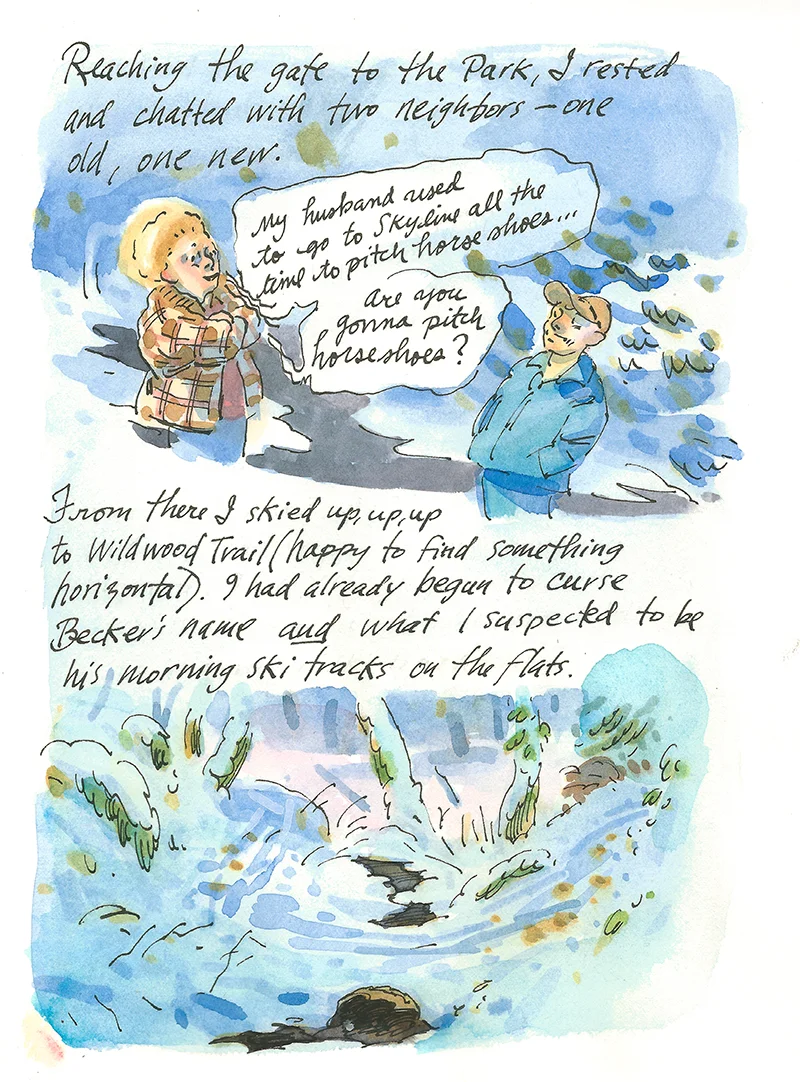 Reaching the gate to the Park, I rested
and chatted with two neighbors — one
old, one new.
My husband used
to go to Skyline all the
time to pitch horse shoes...
Are you
gonna pitch
horseshoes?
From there I skied up, up, up
to Wildwood Trail (happy to find something
horizontal). I had already begun to curse
Becker's name and what I suspected to be
his morning ski tracks on the flats.